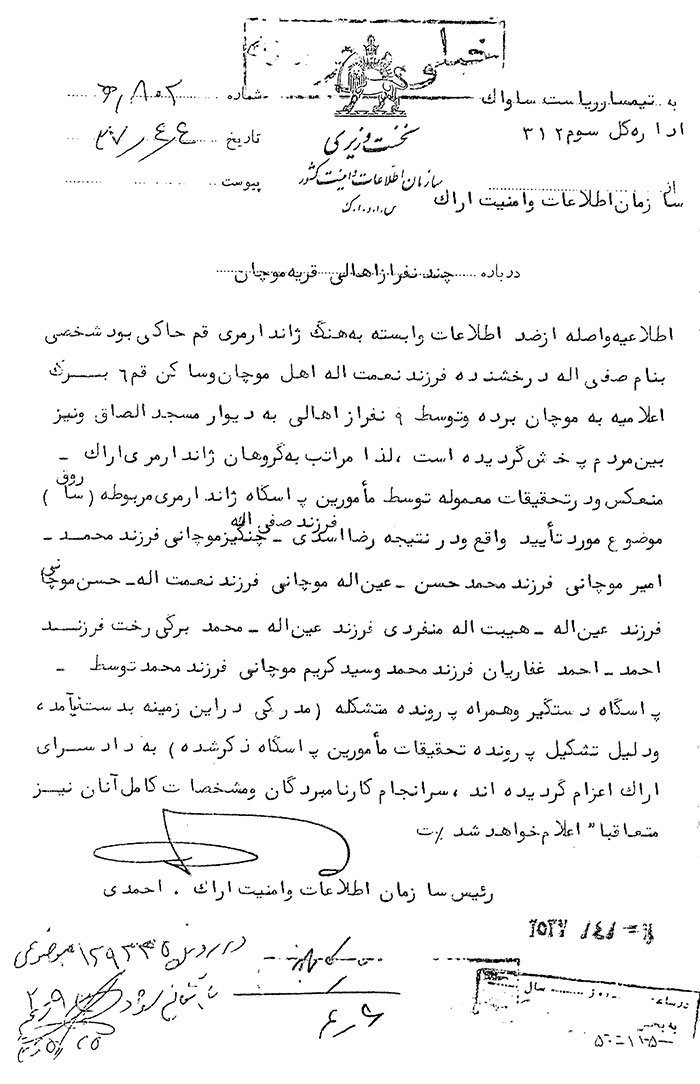 به تیمسار ریاست ساواک
اداره کل سوم ۳۱۲
از
سازمان اطلاعات وامنیت اراک
نخست وزیری
سازمان اطلاعات و امنیت کشور
س.ا.و.ا.ک
شماره
تاریخ
پیوست
درباره چند نفر از اهالی قریه موچان
اطلاعیه واصله از ضد اطلاعات وابسته به هنگ ژاندارمری قم حاکی بود شخصی
بنام صفی اله درخشنده فرزند نعمت اله اهل موچان وساکن قم ۶ بــرگ
اعلامیه به موچان برده وتوسط ۹ نفر از اهالی به دیوار مسجد الصاق ونیز
بین مردم پخش گردیده است ، لذا مراتب به گروهان ژاندارمری اراک ـ
منعکس ودرتحقیقات معموله توسط مأمورین پاسگاه ژاندارمری مربوطه ( ساروق )
موضوع مورد تأیید واقع ودر نتیجه رضا اسدی فرزند صفی اله ـ چنگیز موچانی فرزند محمـد ـ
امیر موچانی فرزند محمد حسن ـ عین اله موچانی فرزند نعمت اله ـ حسن موچانی
فرزند عین اله ـ هیبت اله منفردی فرزند عین اله ـ محمد برگی رخت فرزنــد
احمد ـ احمد غفاریان فرزند محمد وسید کریم موچانی فرزند محمد توسط ـ
پاسگاه دستگیر وهمراه پرونده متشکله ( مدرکی دراین زمینه بدست نیآمده
ودلیل تشکیل پرونده تحقیقات مأمورین پاسگاه ذکرشده ) به دادســرای
اراک اعزام گردیده اند ، سرانجام کار نامبردگان ومشخصات کامل آنان نیــز
متعاقبا" اعلام خواهد شد ٪ت
رئیس سازمان اطلاعات وامنیت اراک . احمدی
در ساعت روز سال
به بخش
۵۰-۱۱-۵